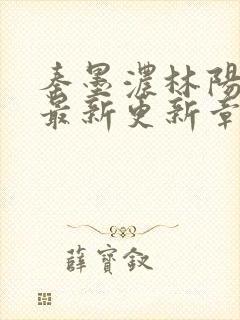 秦墨濃林陽
最新更新章
薛寶釵